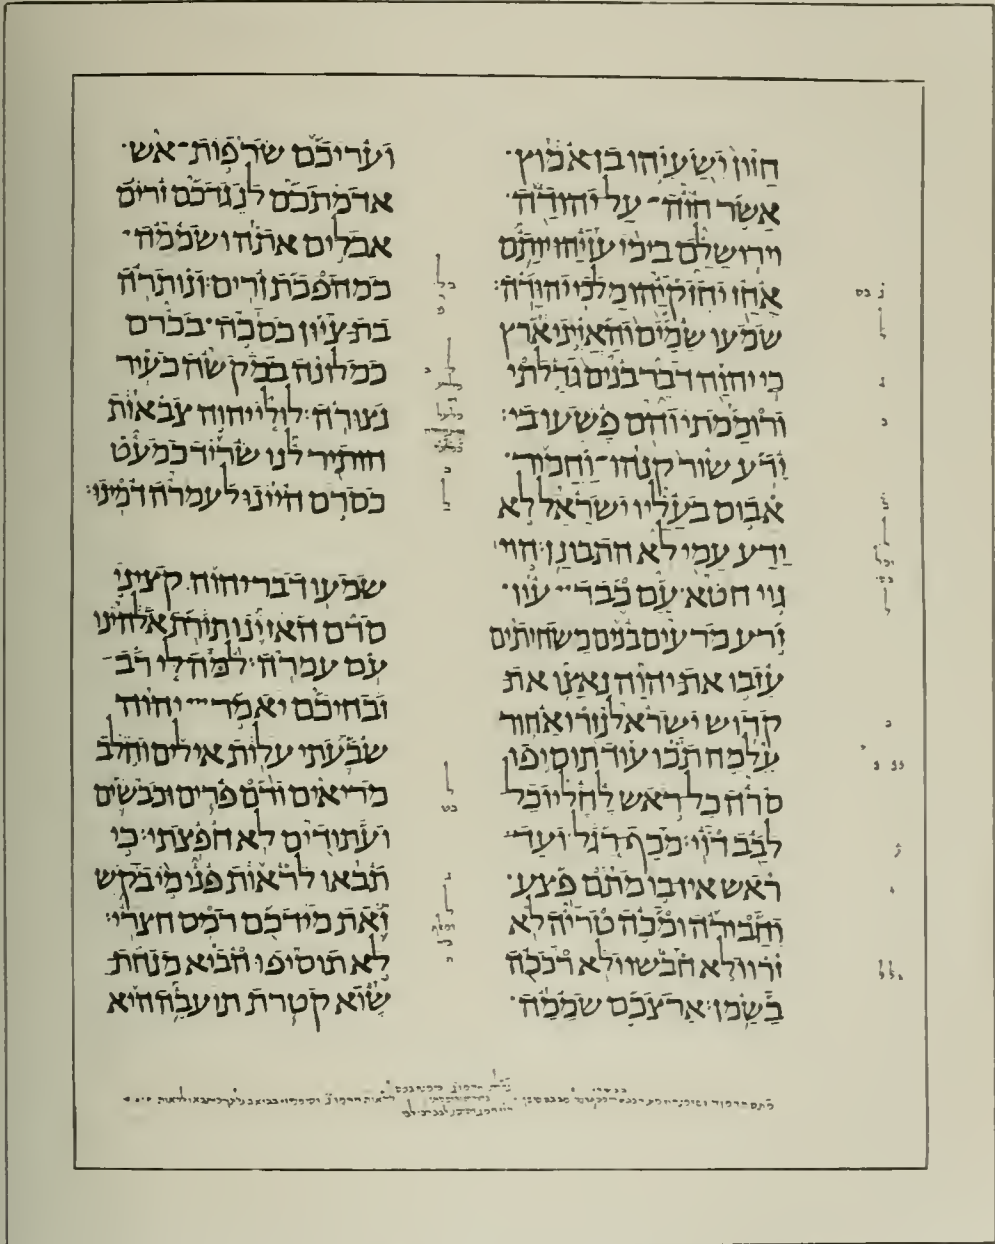 חזון ישעיהו בן אמוץ
אשר חזה־ על יהודה
וירושלם בימי עזיהו יותם
אחז יחזקיהו מלכי יהודה:
שמעו שמים והאזיני ארץ
כי יהוה דבר בנים גדלתי
ורוממתי והם פשעו בי:
ידע שור קנהו־ וחמור־
אבוס בעליו ישראל לא
ידע עמי לא התבונן: הוי
גוי חטא עם כבד־ עון
זרע מרעים בנים משחיתים
עזבו את יהוה נאצו את
קדוש ישראל נזרו אחור
על מה תכו עוד תוסיפו
סרה כל ראש לחלי וכל
לבב דוי: מכף רגל ועד־
ראש אין בו מתם פצע
וחבורה ומכה טריה לא
זרו ולא חבשו ולא רככה
בשמן: ארצכם שממה
ועריכם שרפות־ אש
אדמתכם לנגדכם זרים
אכלים אתה ושממה־
כמהפכת זרים: ונותרה
בת ציון כסכה־ בכרם
כמלונה במקשה כעיר
נצורה: לולי יהוה צבאות
הותיר לנו שריד כמעט
כסדם היינו לעמרה דמינו:
שמעו דבר יהוה קציני
סדם האזינו תורת אלהינו
עם עמרה: למה לי רב־
זבחיכם יאמר־ יהוה
שבעתי עלות אילים וחלב
מריאים ודם פרים וכבשים
ועתודים לא חפצתי: כי
תבאו לראות פני מי בקש
זאת מידכם רמס חצרי:
לא תוסיפו הביא מנחת
שוא קטרת תועבה היא